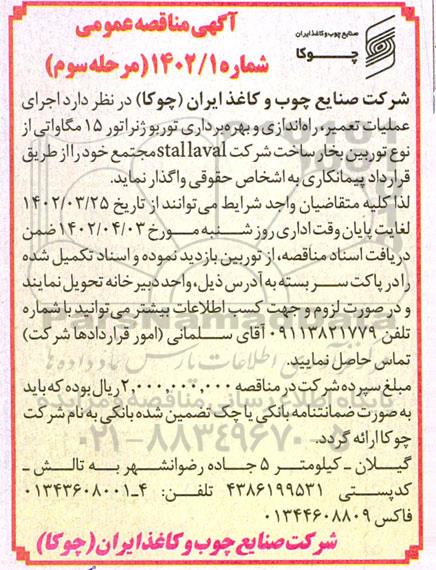 صنایع چوب و کاغذ ایران
چـــوکا
آگهی مناقصه عمومی
شماره ۱۴۰۲/۱ (مرحله سوم)
شرکت صنایع چوب و کاغذ ایران (چوکا) در نظر دارد اجرای
عملیات تعمیر، راه‌اندازی و بهره‌برداری توربوژنراتور ۱۵ مگاواتی از
نوع توربین بخار ساخت شرکت stal laval مجتمع خود را از طریق
قرارداد پیمانکاری به اشخاص حقوقی واگذار نماید.
لذا کلیه متقاضیان واجد شرایط می‌توانند از تاریخ ۱۴۰۲/۰۳/۲۵
لغایت پایان وقت اداری روز شنبه مورخ ۱۴۰۲/۰۴/۰۳ ضمن
دریافت اسناد مناقصه، از توربین بازدید نموده و اسناد تکمیل شده
را در پاکت سر بسته به آدرس ذیل، واحد دبیرخانه تحویل نمایند
و در صورت لزوم و جهت کسب اطلاعات بیشتر می‌توانید با شماره
تلفن ۰۹۱۱۳۸۲۱۷۷۹ آقای سلمانی (امور قراردادها شرکت)
تماس حاصل نمایید.
مبلغ سپرده شرکت در مناقصه ۲,۰۰۰,۰۰۰,۰۰۰ ریال بوده که باید
به صورت ضمانتنامه بانکی یا چک تضمین شده بانکی به نام شرکت
چوکا ارائه گردد.
گیلان ـ کیلومتر ۵ جاده رضوانشهر به تالش ـ
کدپستی ۴۳۸۶۱۹۹۵۳۱ تلفن: ۴ـ۰۱۳۴۳۶۰۸۰۰۱
فاکس ۰۱۳۴۴۶۰۸۸۰۹
شرکت صنایع چوب و کاغذ ایران (چوکا)
۰۲۱-۸۸۳۴۹۶۷۰-۵